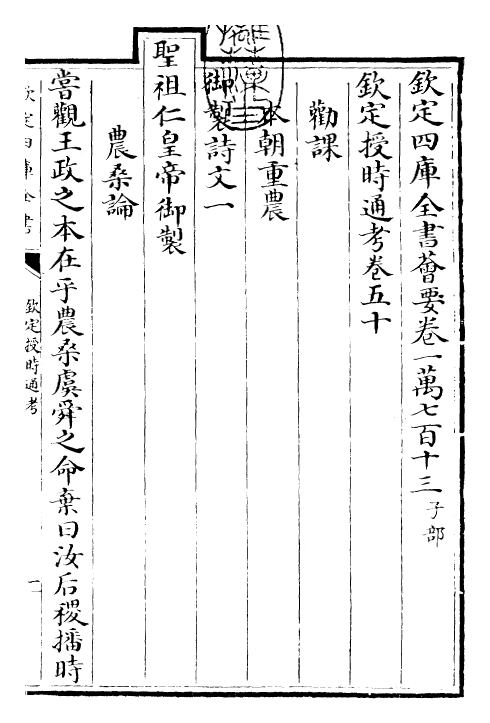 欽定四庫全書薈要卷一萬七百十三 子部
欽定授時通考卷五十
勸課
本朝重農
御製詩文一
聖祖仁皇帝御製
農桑論
嘗觀王政之本在乎農桑虞舜之命棄曰汝后稷播時
欽定四庫全書
欽定授時通考
一